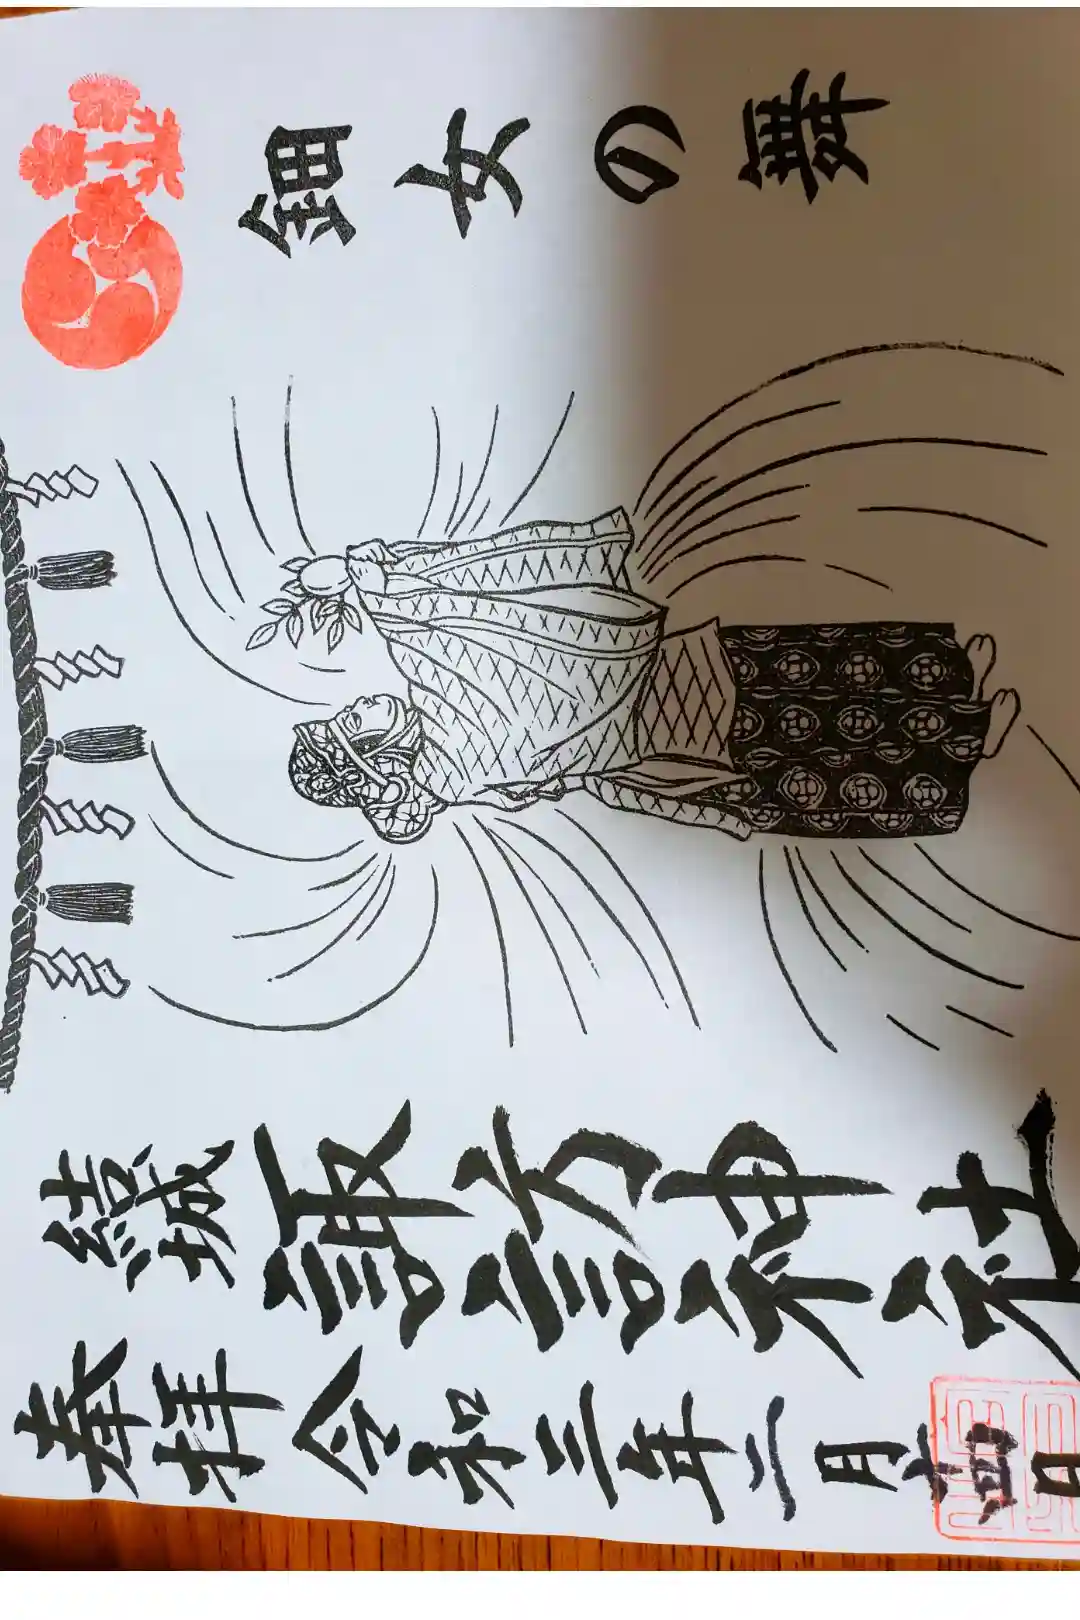 鈿女の舞
結城
諏訪神社
奉拝 令和三年二月十四日